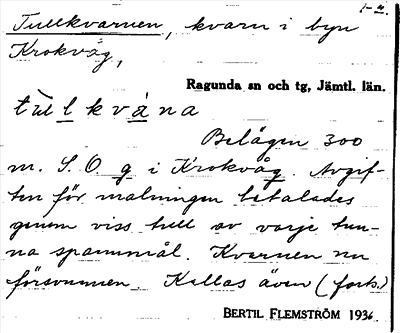 1-2.
Tullkvarnen, kvarn i byn
Krokvåg,
Ragunda sn och tg, Jämtl. län.
túllkvàna
Belägen 300
m. S.O. g i Krokvåg. Avgif-
ten för malningen betalades
genom viss tull av varje tun-
na spannmål. Kvarnen nu
försvunnen. Kallas även (forts.)
BERTIL FLEMSTRÖM 1936.